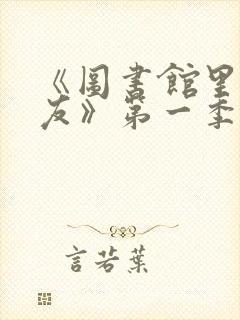 《圖書館里
友》第一季
言若葉